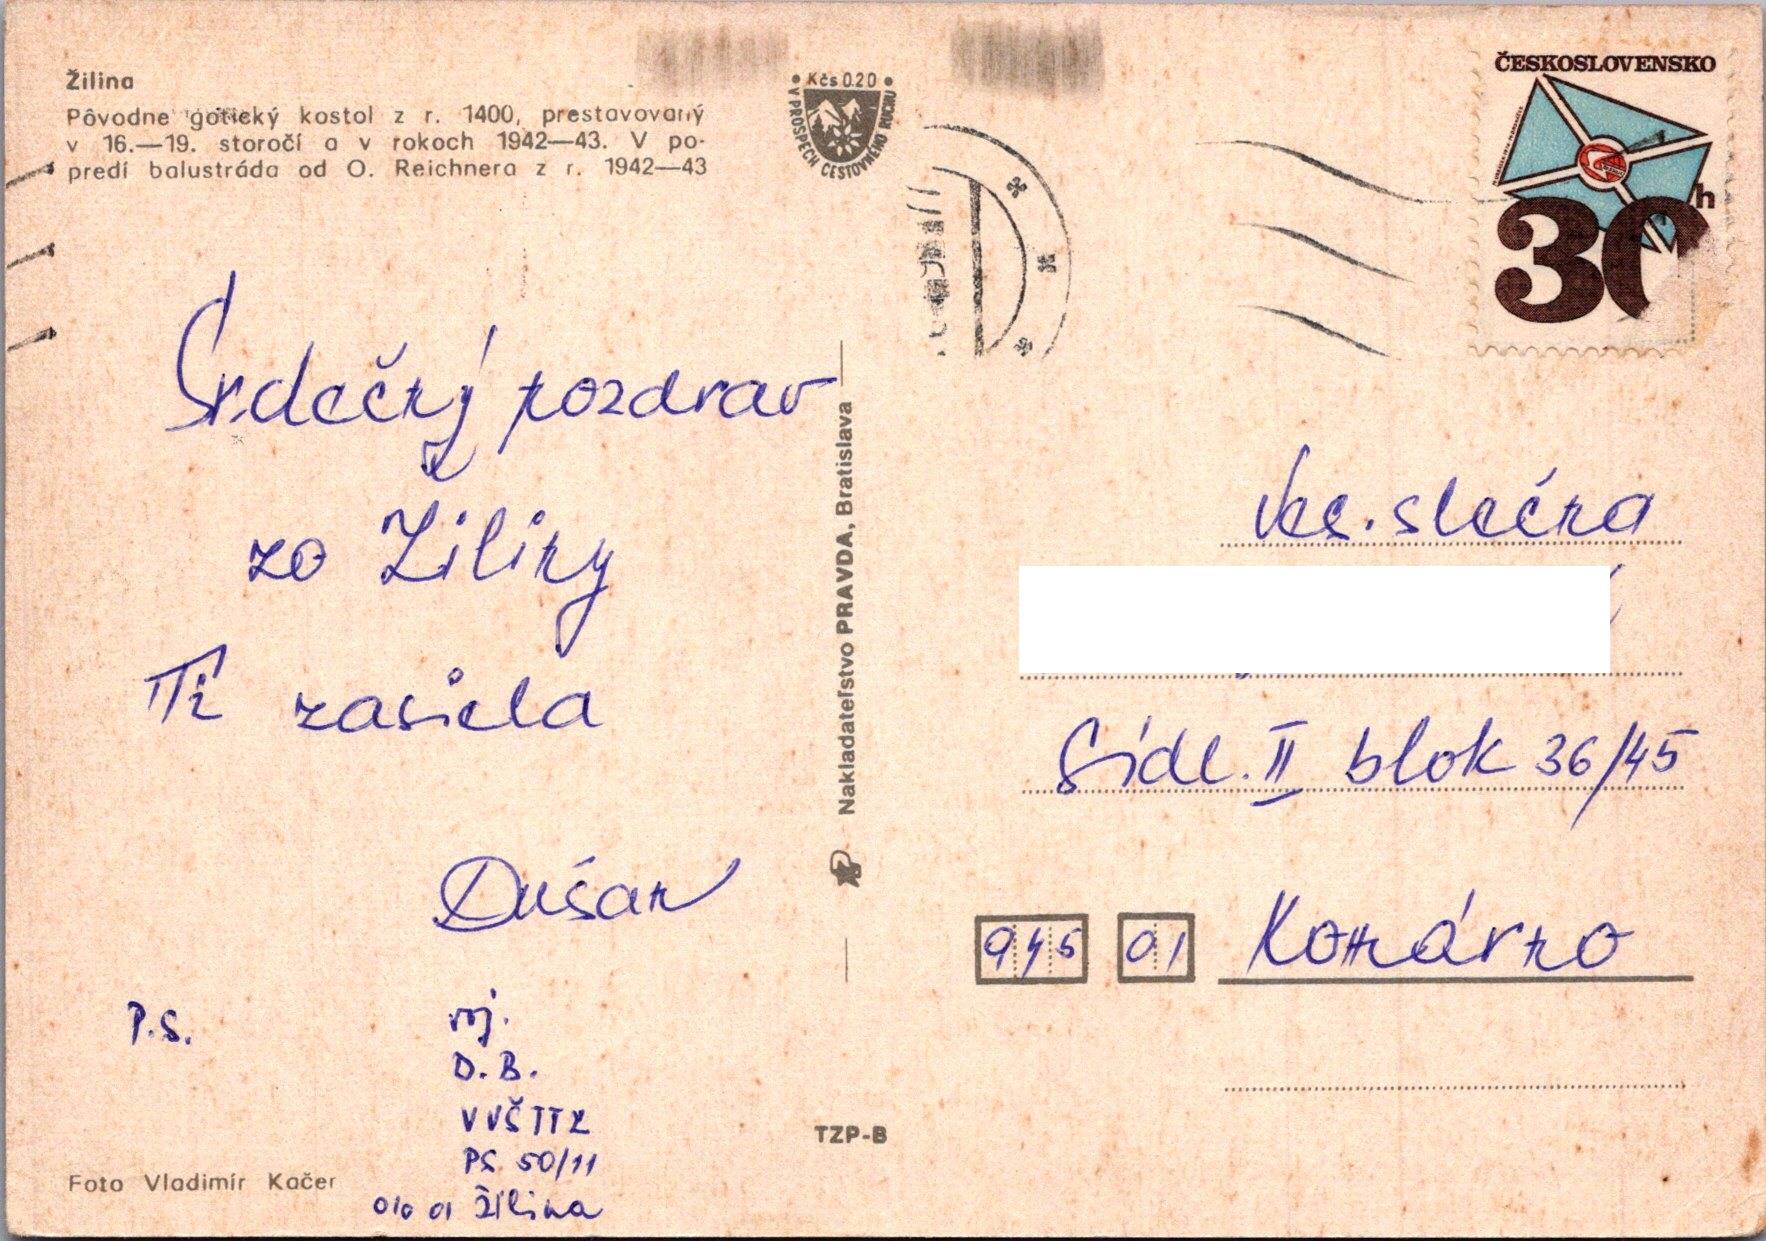 Žilina
Pôvodne gotický kostol z r. 1400, prestavovaný
v 16.—19. storočí a v rokoch 1942—43. V po-
predí balustráda od O. Reichnera z r. 1942—43
• Kčs 0.20 •
V PROSPECH CESTOVNÉHO RUCHU
ČESKOSLOVENSKO
30 h
Srdečný pozdrav
zo Žiliny
Ti zasiela
Dušan
P.S.
voj.
D.B.
VVŠTTZ
PS 50/11
010 01 Žilina
Foto Vladimír Kačer
Nakladateľstvo PRAVDA, Bratislava
TZP-B
Vec. slečna
Sídl. II blok 36/45
945 01 Komárno